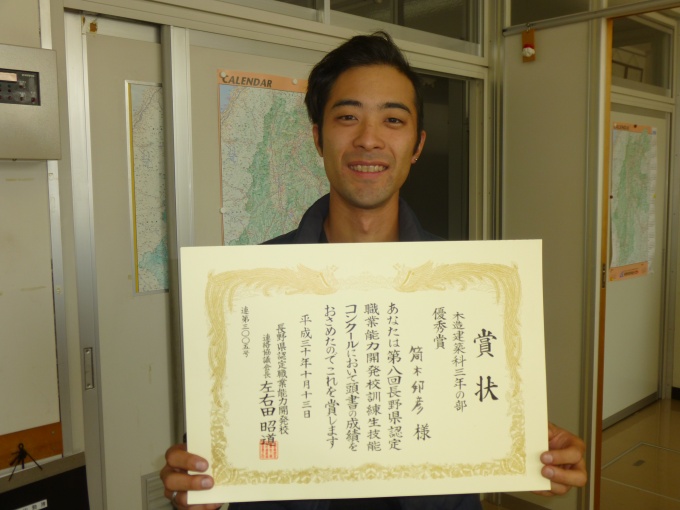 CALENDAR
賞状
木造建築科三年の部
優秀賞
あなたは第八回長野県認定
職業能力開発校訓練生技能
コンクールにおいて頭書の成績を
おさめたのでこれを賞します
平成三十年十月十三日
長野県認定職業能力開発校
連絡協議会長 左右田 昭道
連第三〇〇五号